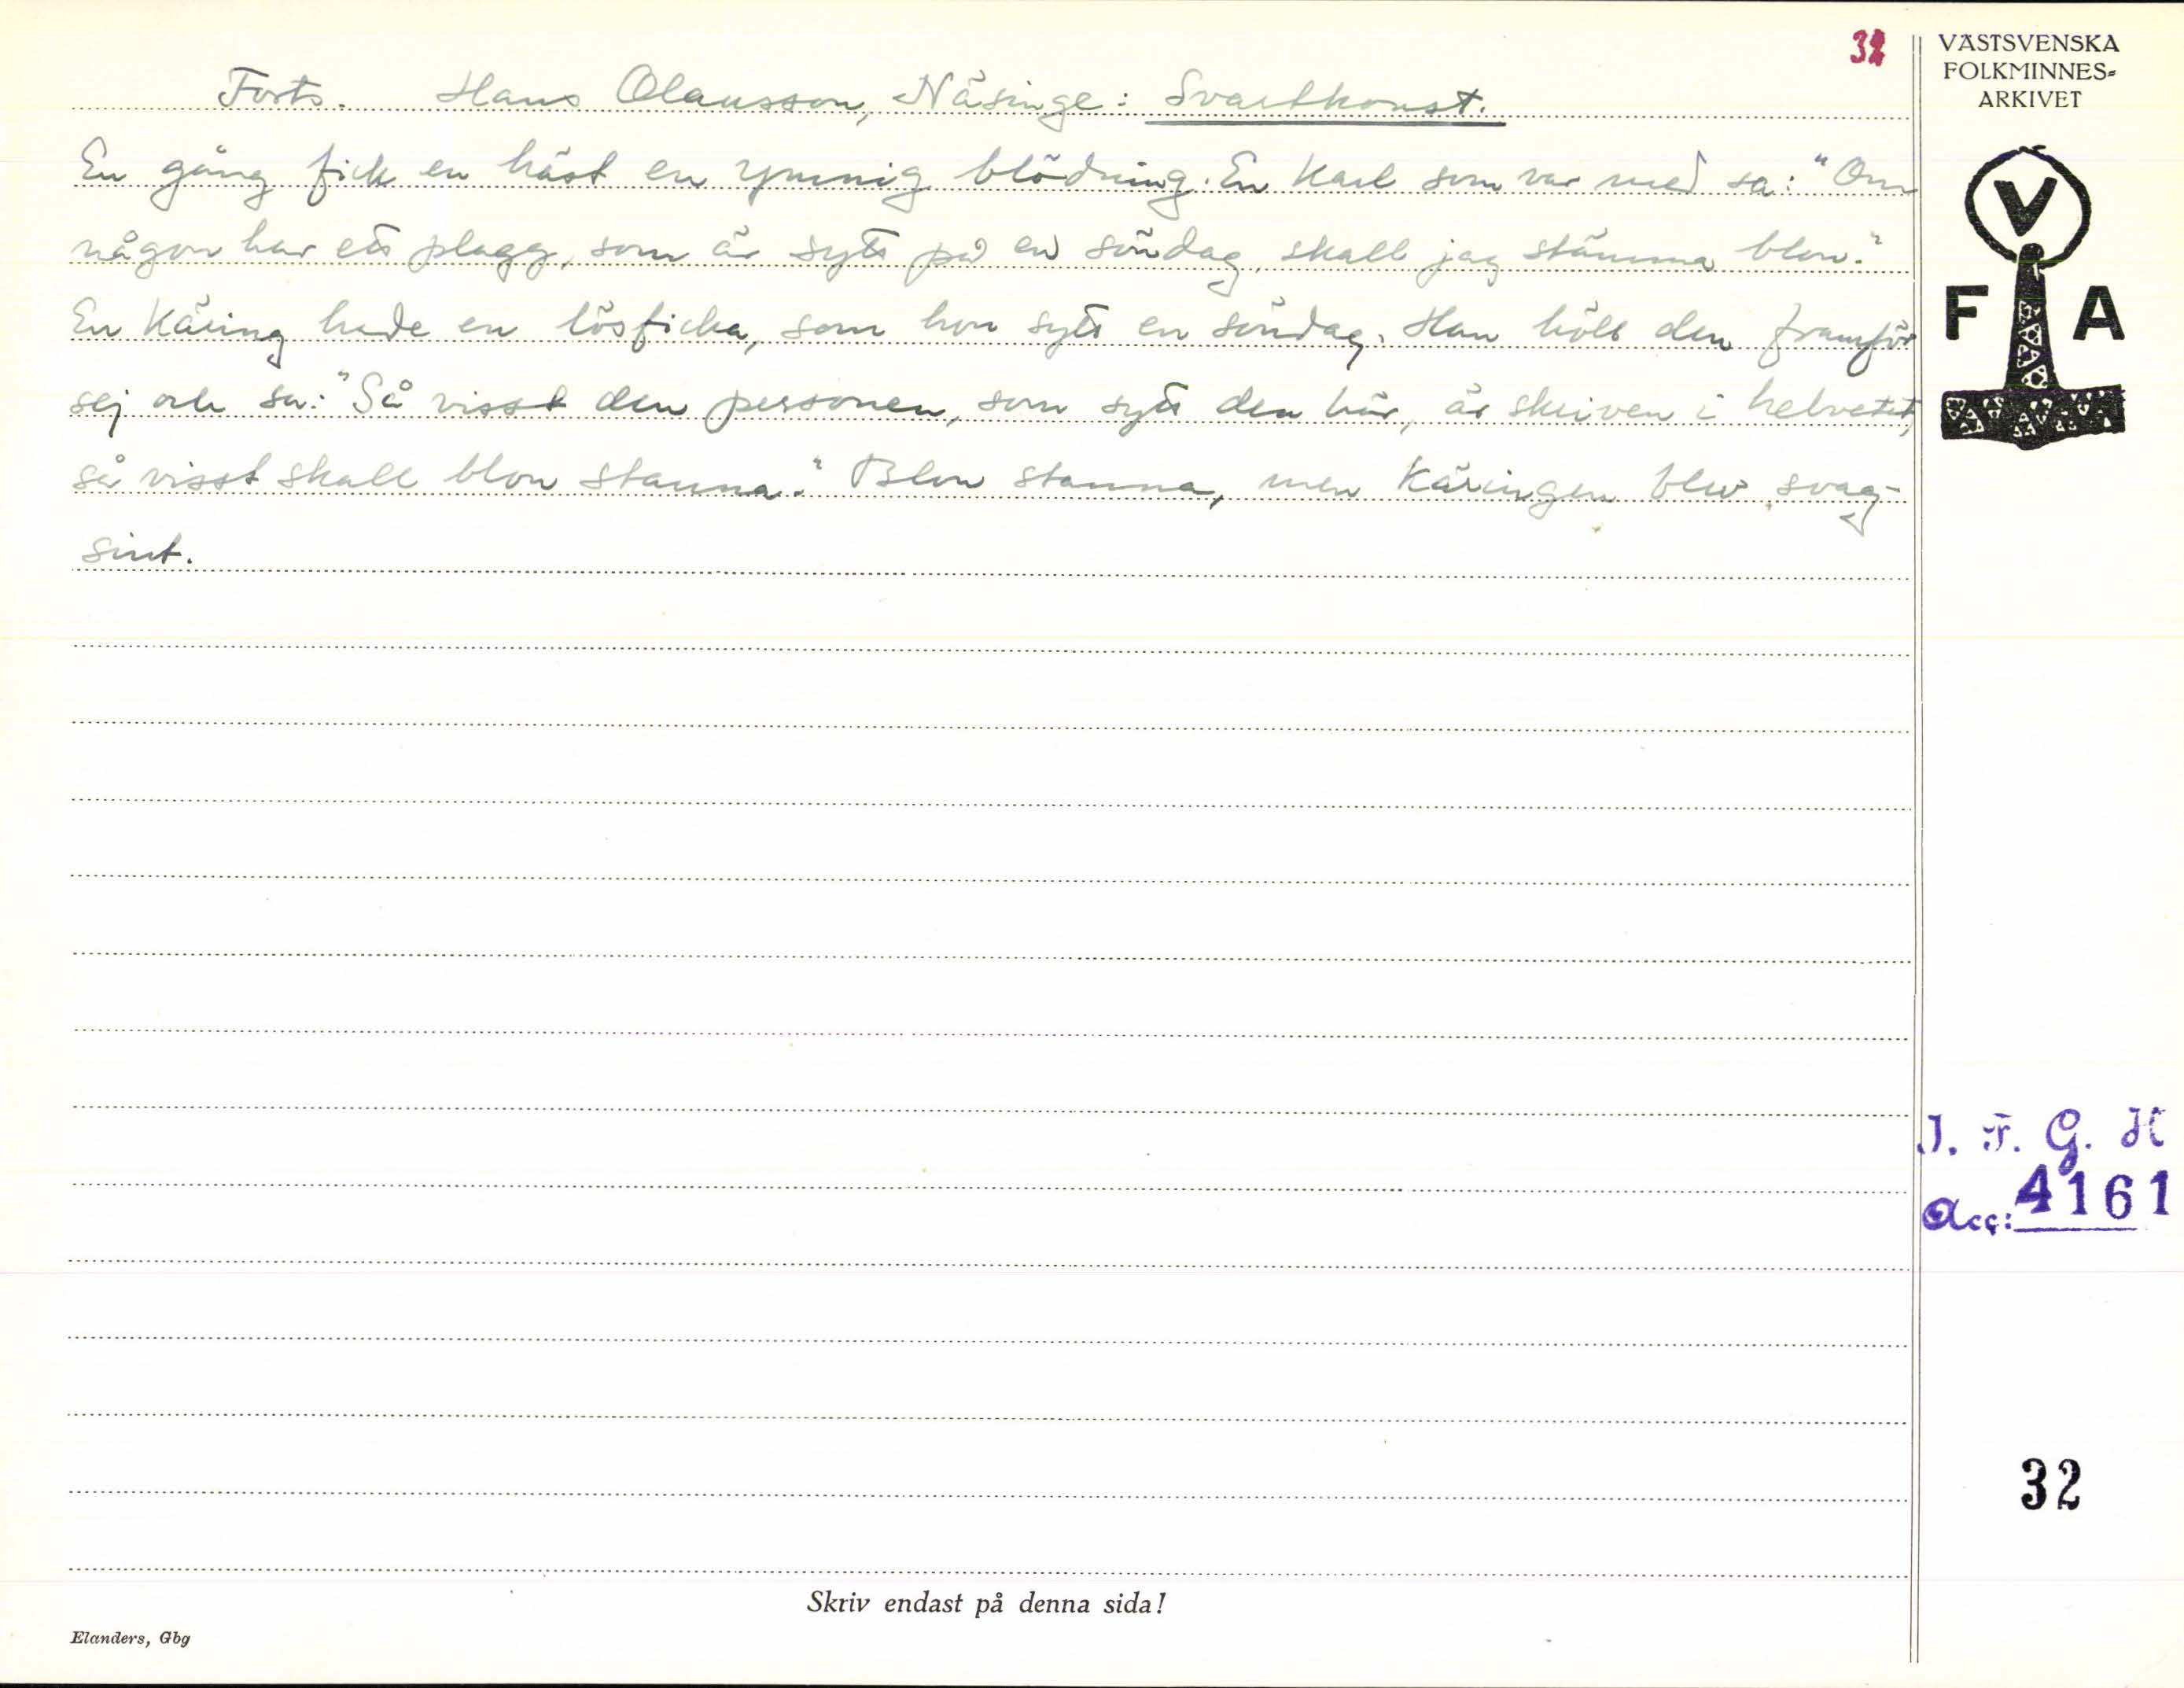 32
Forts. Hans Olausson, Näsinge: Svartkonst.
En gång fick en häst en ymnig blödning. En karl som var med sa: "Om
någon har ett plagg, som är sytt på en söndag, skall jag stämma blon."
En käring hade en lösficka, som hon sytt en söndag. Han höll den framför
sej och sa: "Så visst den personen, som sytt den här, är skriven i helvetet,
så visst skall blon stanna." Blon stanna, men käringen blev svag-
sint.
Skriv endast på denna sida!
Elanders, Gbg
VÄSTSVENSKA
FOLKMINNES=
ARKIVET
V
F A
I. F. G. H
Acc: 4161
32